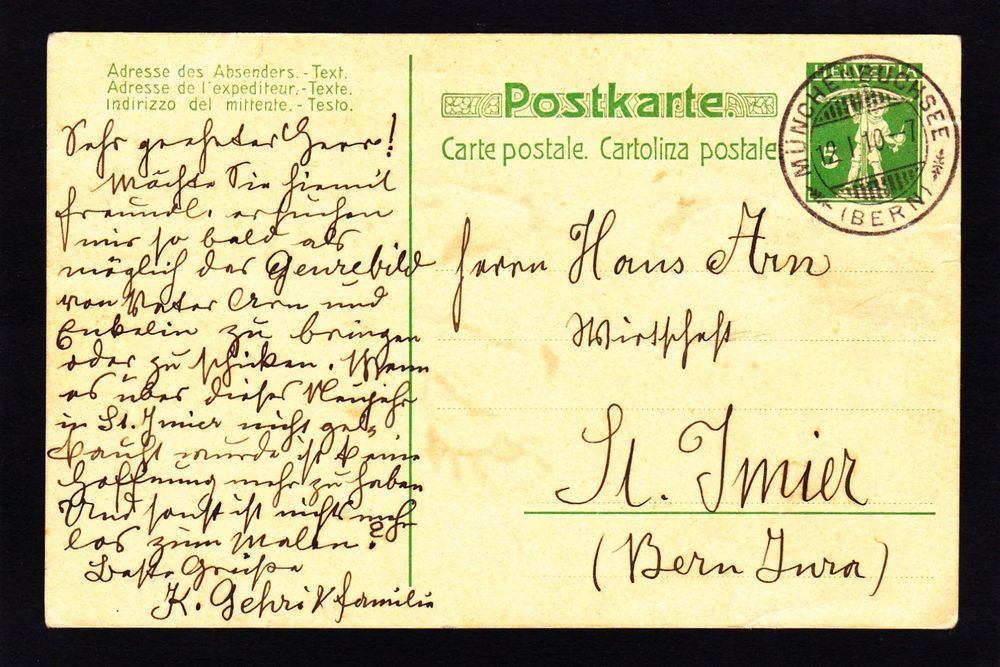 Adresse des Absenders. - Text.
Adresse de l'expéditeur. - Texte.
Indirizzo del mittente. - Testo.
Sehr geehrter Herr!
Möchte Sie hiemit
freundl. ersuchen
mir so bald als
möglich das Genrebild
von Vater Arn und
Enkelin zu bringen
oder zu schicken. Wenn
es über dieses Neujahr
in St. Imier nicht ge=
kauft wurde ist keine
Hoffnung mehr zu haben
Und sonst ist nichts mehr
los zum Malen?
Beste Grüße
K. Gehri & Familie
Postkarte.
Carte postale. Cartolina postale
HELVETIA
MÜNCHENBUCHSEE
12. I. 10.-7
(BERN)
Herrn Hans Arn
Wirtschaft
St. Imier
(Bern Jura)